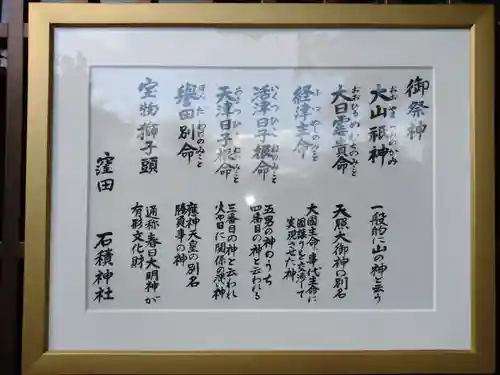 御祭神
大山祇神
おおやまつみのかみ
一般的に山の神と云う
大日霊貴命
おおひるめむちのみこと
天照大御神の別名
経津主命
ふつぬしのみこと
大国主命、事代主命に
国譲りを交渉して
実現させた神
活津日子根命
いくつひこねのみこと
五男の神のうち
四番目の神と云われる
天津日子根命
あまつひこねのみこと
三番目の神と云われ
火や日に関係の深い神
誉田別命
ほんだわけのみこと
応神天皇の別名
勝負事の神
宝物獅子頭
通称春日大明神が
有形文化財
窪田 石積神社